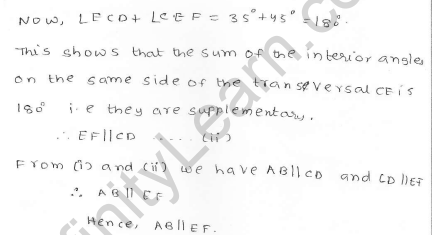 NOW, LECD + LCEF = 35° + 45° = 180°.
This shows that the sum of the interior angles
on the same side of the transversal CE is
180° i.e they are supplementary.
∴ EF||CD ..... (ii)
From (i) and (ii) we have AB||CD and CD||EF
∴ AB||EF
Hence, AB||EF.